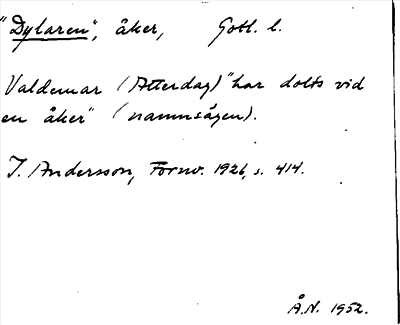 "Dylaren", åker, Gotl. l.
Valdemar (Atterdag) "har dolts vid
en åker" (namnsägen).
I. Andersson, Fornv. 1926, s. 414.
Å.N. 1952.